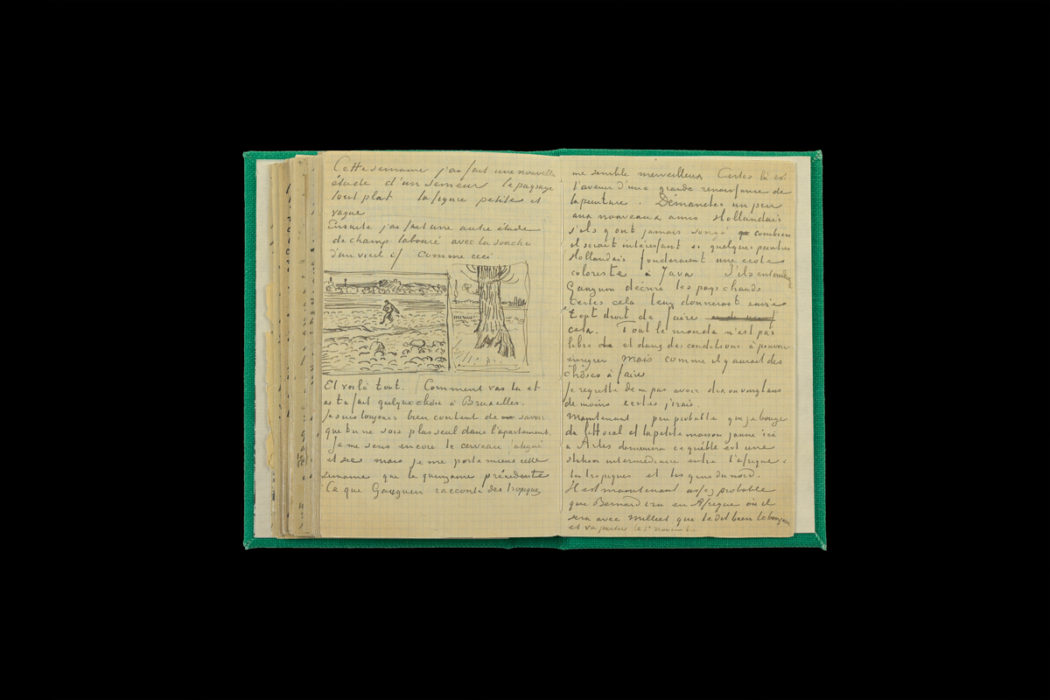 Cette semaine j'ai fait une nouvelle
étude d'un semeur le paysage
tout plat la figure petite et
vague
Ensuite j'ai fait une autre étude
de champ labouré avec la souche
d'un vieil if comme ceci
Et voilà tout. Comment vas tu et
as tu fait quelquechose à Bruxelles.
Je suis toujours bien content de savoir
que tu ne sois plus seul dans l'appartement.
Je me sens encore le cerveau fatigué
et sec mais je me porte mieux cette
semaine que la quinzaine précédente
Ce que Gauguin raconte des tropiques
me semble merveilleux Certes là est
l'avenir d'une grande renaissance de
la peinture. Demandes un peu
aux nouveaux amis Hollandais
s'ils y ont jamais songé combien
il serait intéressant si quelques peintres
Hollandais fonderaient une école
coloriste à Java S'ils entendaient
Gauguin décrire les pays chauds
certes cela leur donnerait envie
tout droit de faire
cela. Tout le monde n'est pas
libre et dans des conditions à pouvoir
émigrer Mais comme il y aurait des
choses à faire
Je regrette de ne pas avoir dix ou vingt ans
de moins certes j'irais
Maintenant peu probable que je bouge
du littoral et la petite maison jaune ici
à Arles demeurera ce qu'elle est une
station intermédiaire entre l'Afrique
les tropiques et les gens du nord.
Il est maintenant assez probable
que Bernard ira en Afrique où il
sera avec Milliet que te dit bien le bonjour
et va partir le 1er novembre